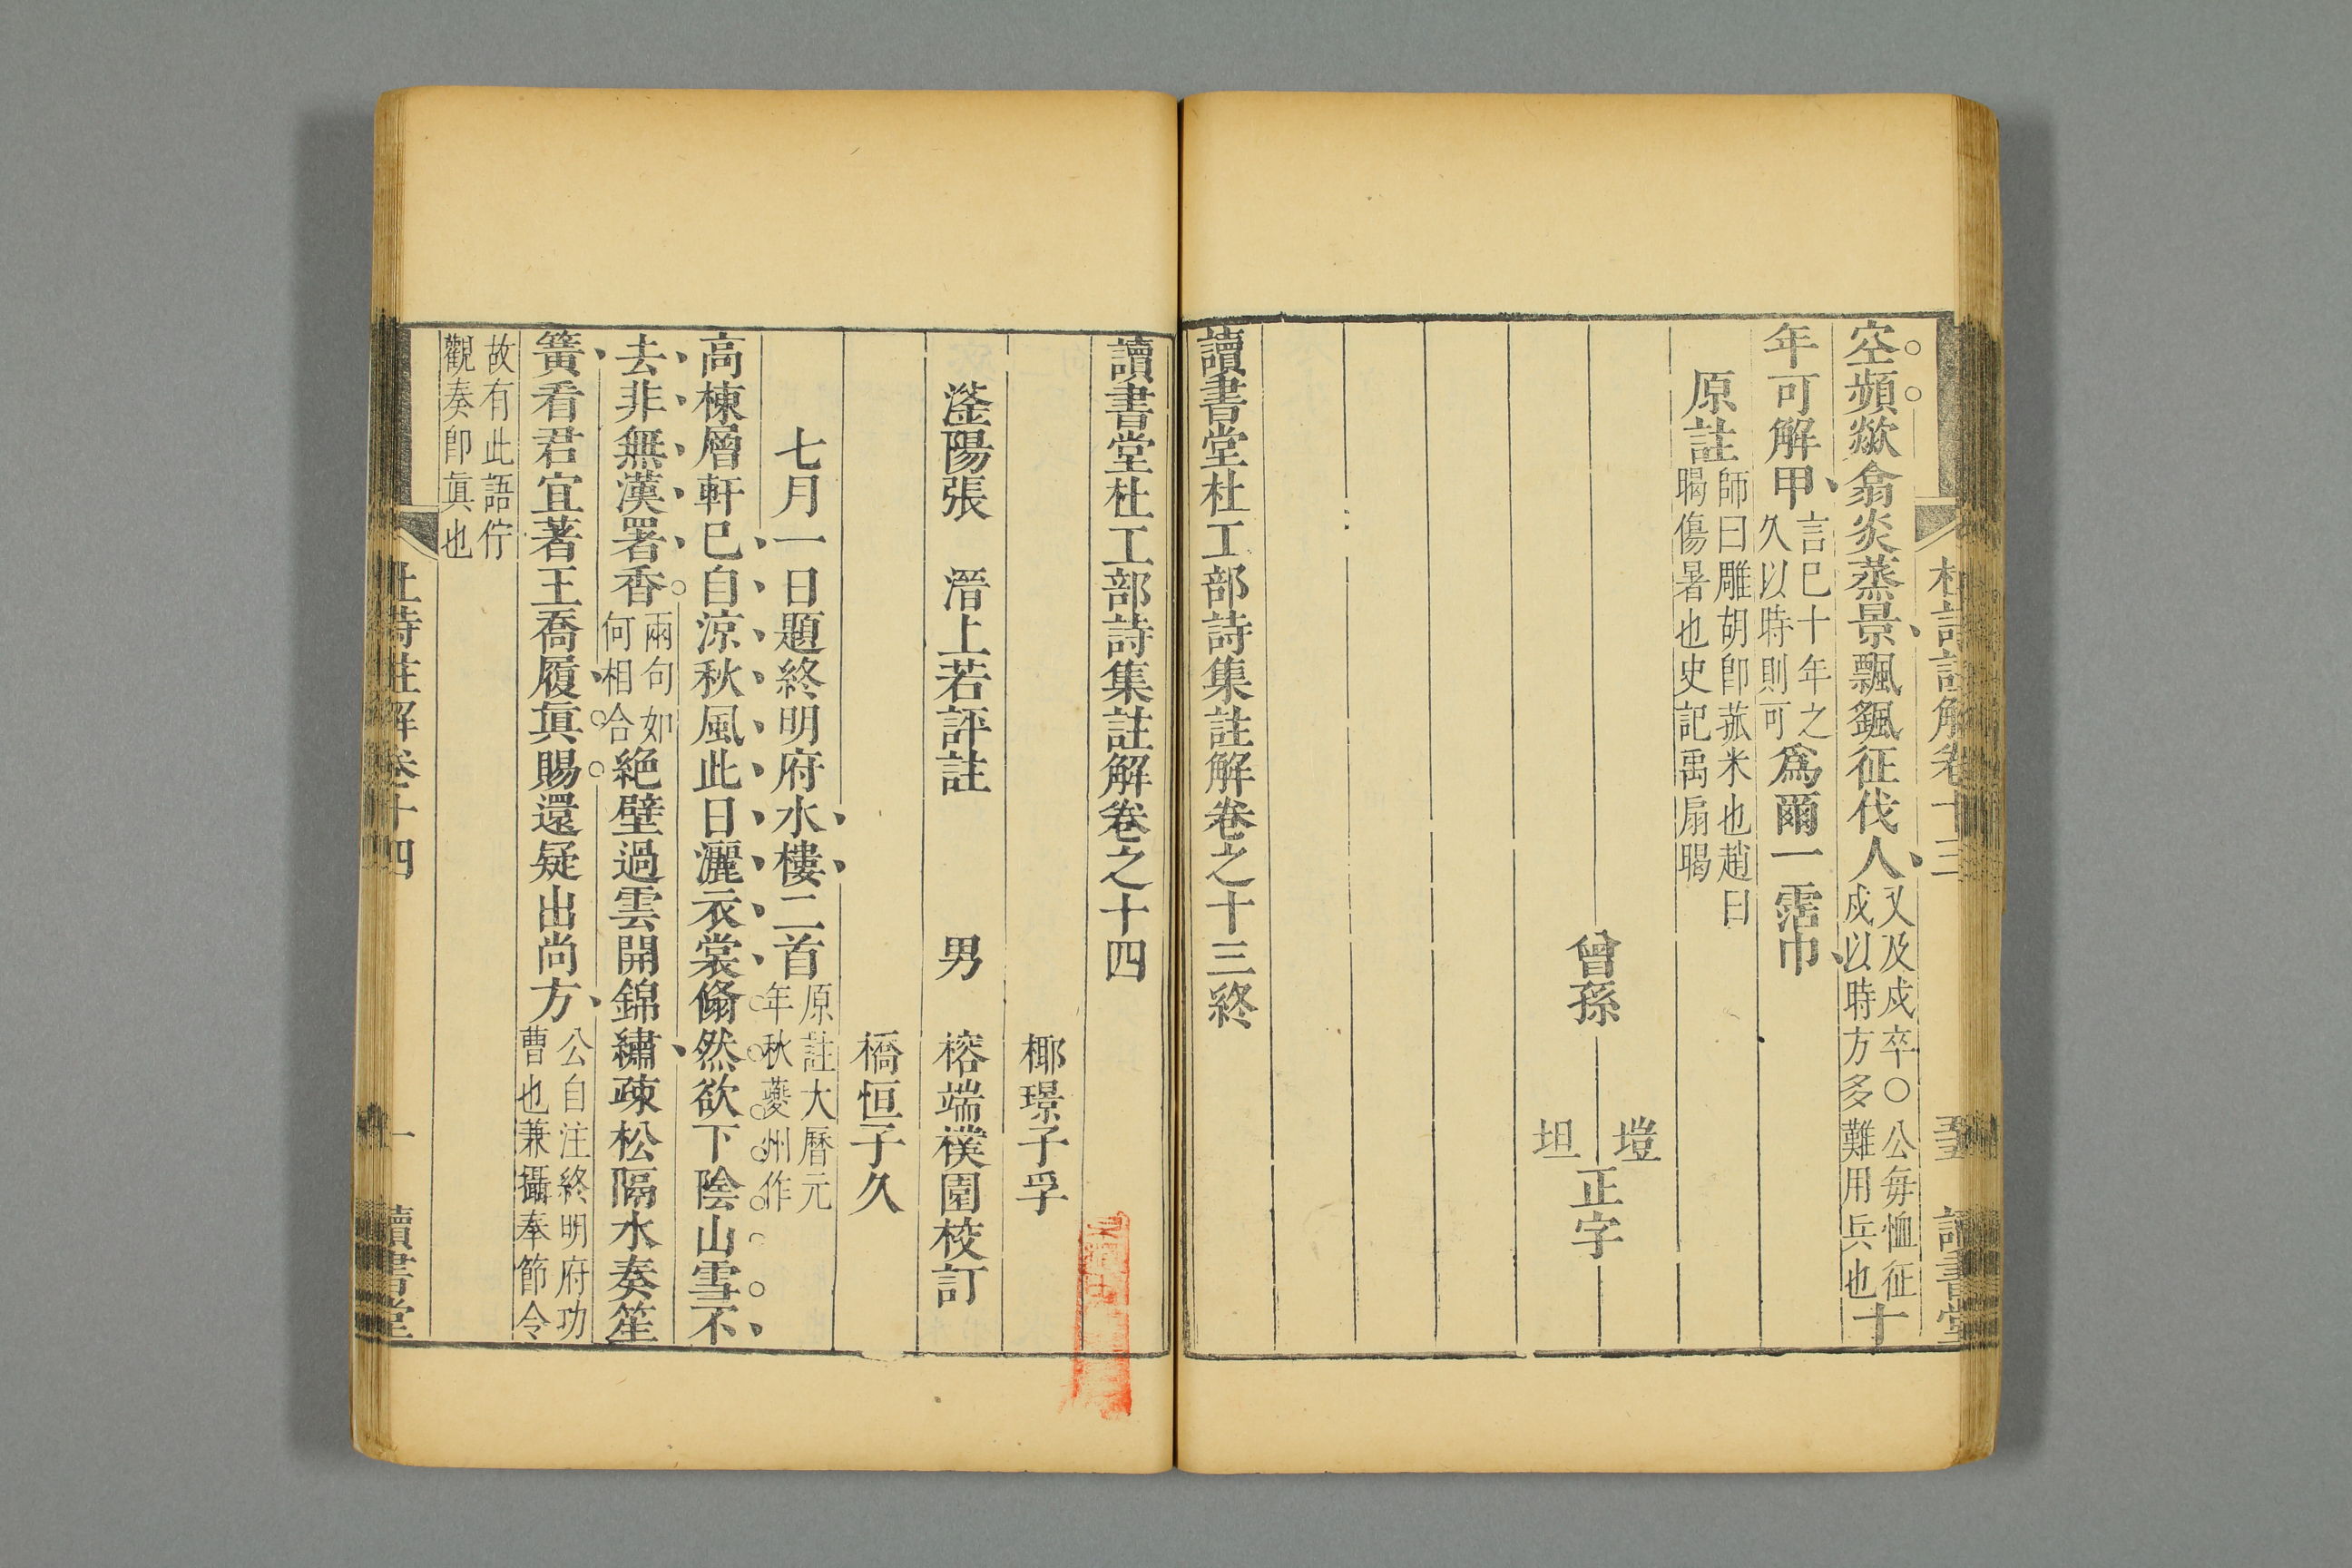 空頻歘翕炎蒸景飄颻征伐人又及戍卒○公每恤征戍以時方多難用兵也十
年可解甲言已十年之久以時則可為爾一霑巾
原註師曰雕胡卽菰米也趙曰暍傷暑也史記禹扇暍
曾孫
塏
坦
正字
讀書堂杜工部詩集註解卷之十三終
讀書堂杜工部詩集註解卷之十四
椰璟子孚
滏陽張 溍上若評註 男 榕端樸園校訂
橋恒子久
七月一日題終明府水樓二首原註大曆元年秋夔州作
高棟層軒已自涼秋風此日灑衣裳翛然欲下陰山雪不
去非無漢署香兩句如何相合絕壁過雲開錦繡疎松隔水奏笙
簧看君宜著王喬履眞賜還疑出尚方公自注終明府功曹也兼攝奉節令
故有此語佇觀奏卽眞也
杜詩註解卷十四 一 讀書堂